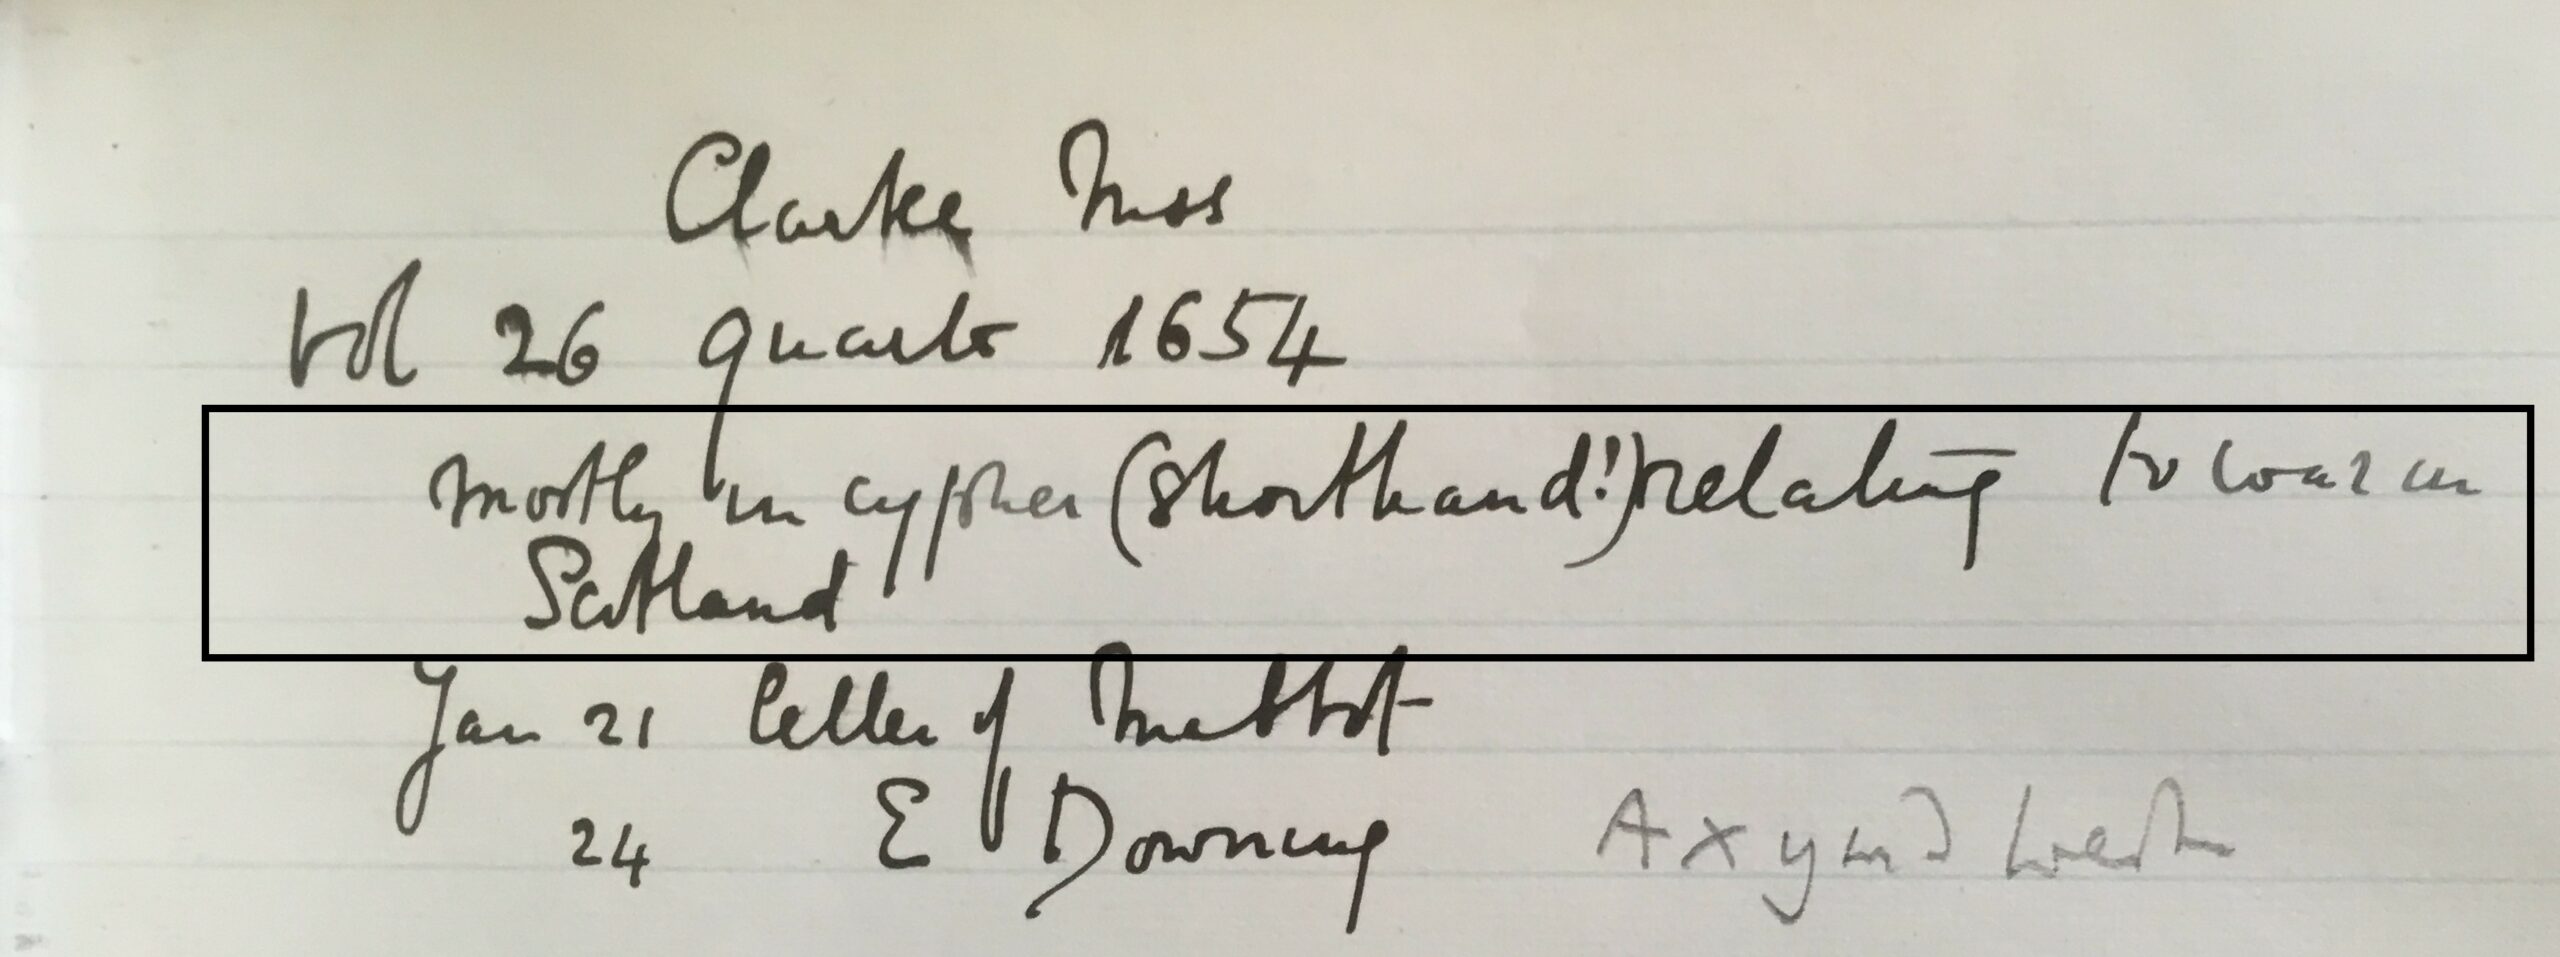 Clarke Mss
vol 26 quarto 1654
mostly in cypher (shorthand!) relating to war in
Scotland
Jan 21 letter of Mabbot
24 E Downing